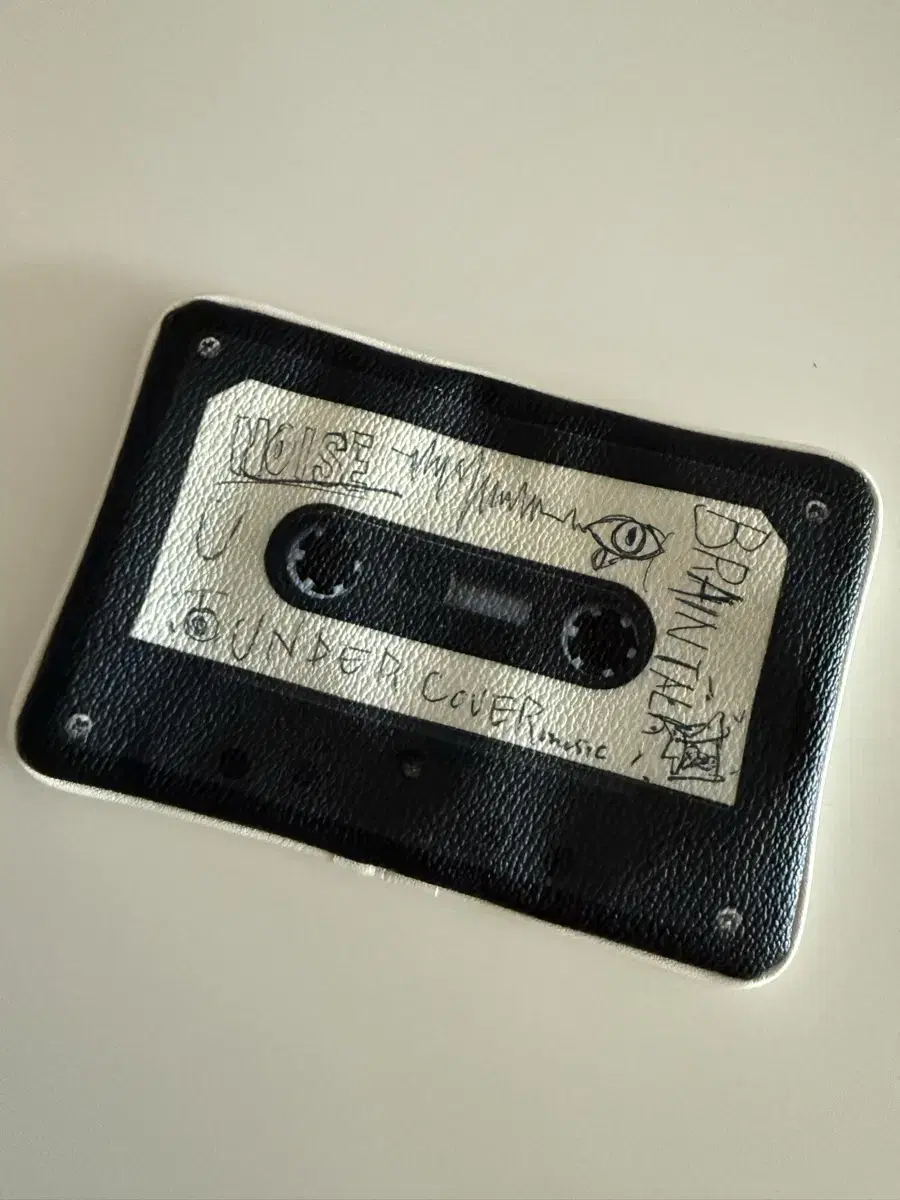 NOISE
U
UNDER COVER music
BRAIN TALK